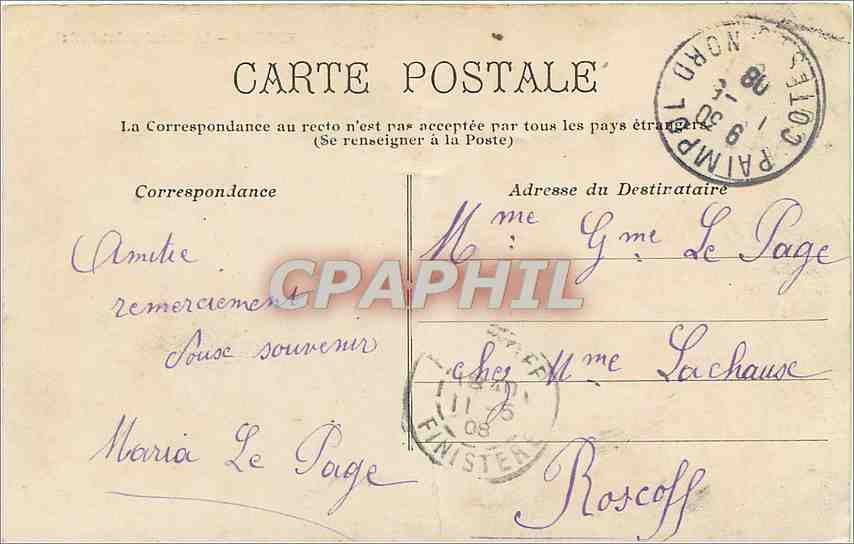 CARTE POSTALE
La Correspondance au recto n'est pas acceptée par tous les pays étrangers
(Se renseigner à la Poste)
Correspondance
Adresse du Destinataire
Amitie
remerciement
Doux souvenir
Maria Le Page
Mme Gme Le Page
chez Mme Lachause
Roscoff
PAIMPOL
COTES
NORD
9 30
08
11 -5
08
FINISTERE
CPAPHIL